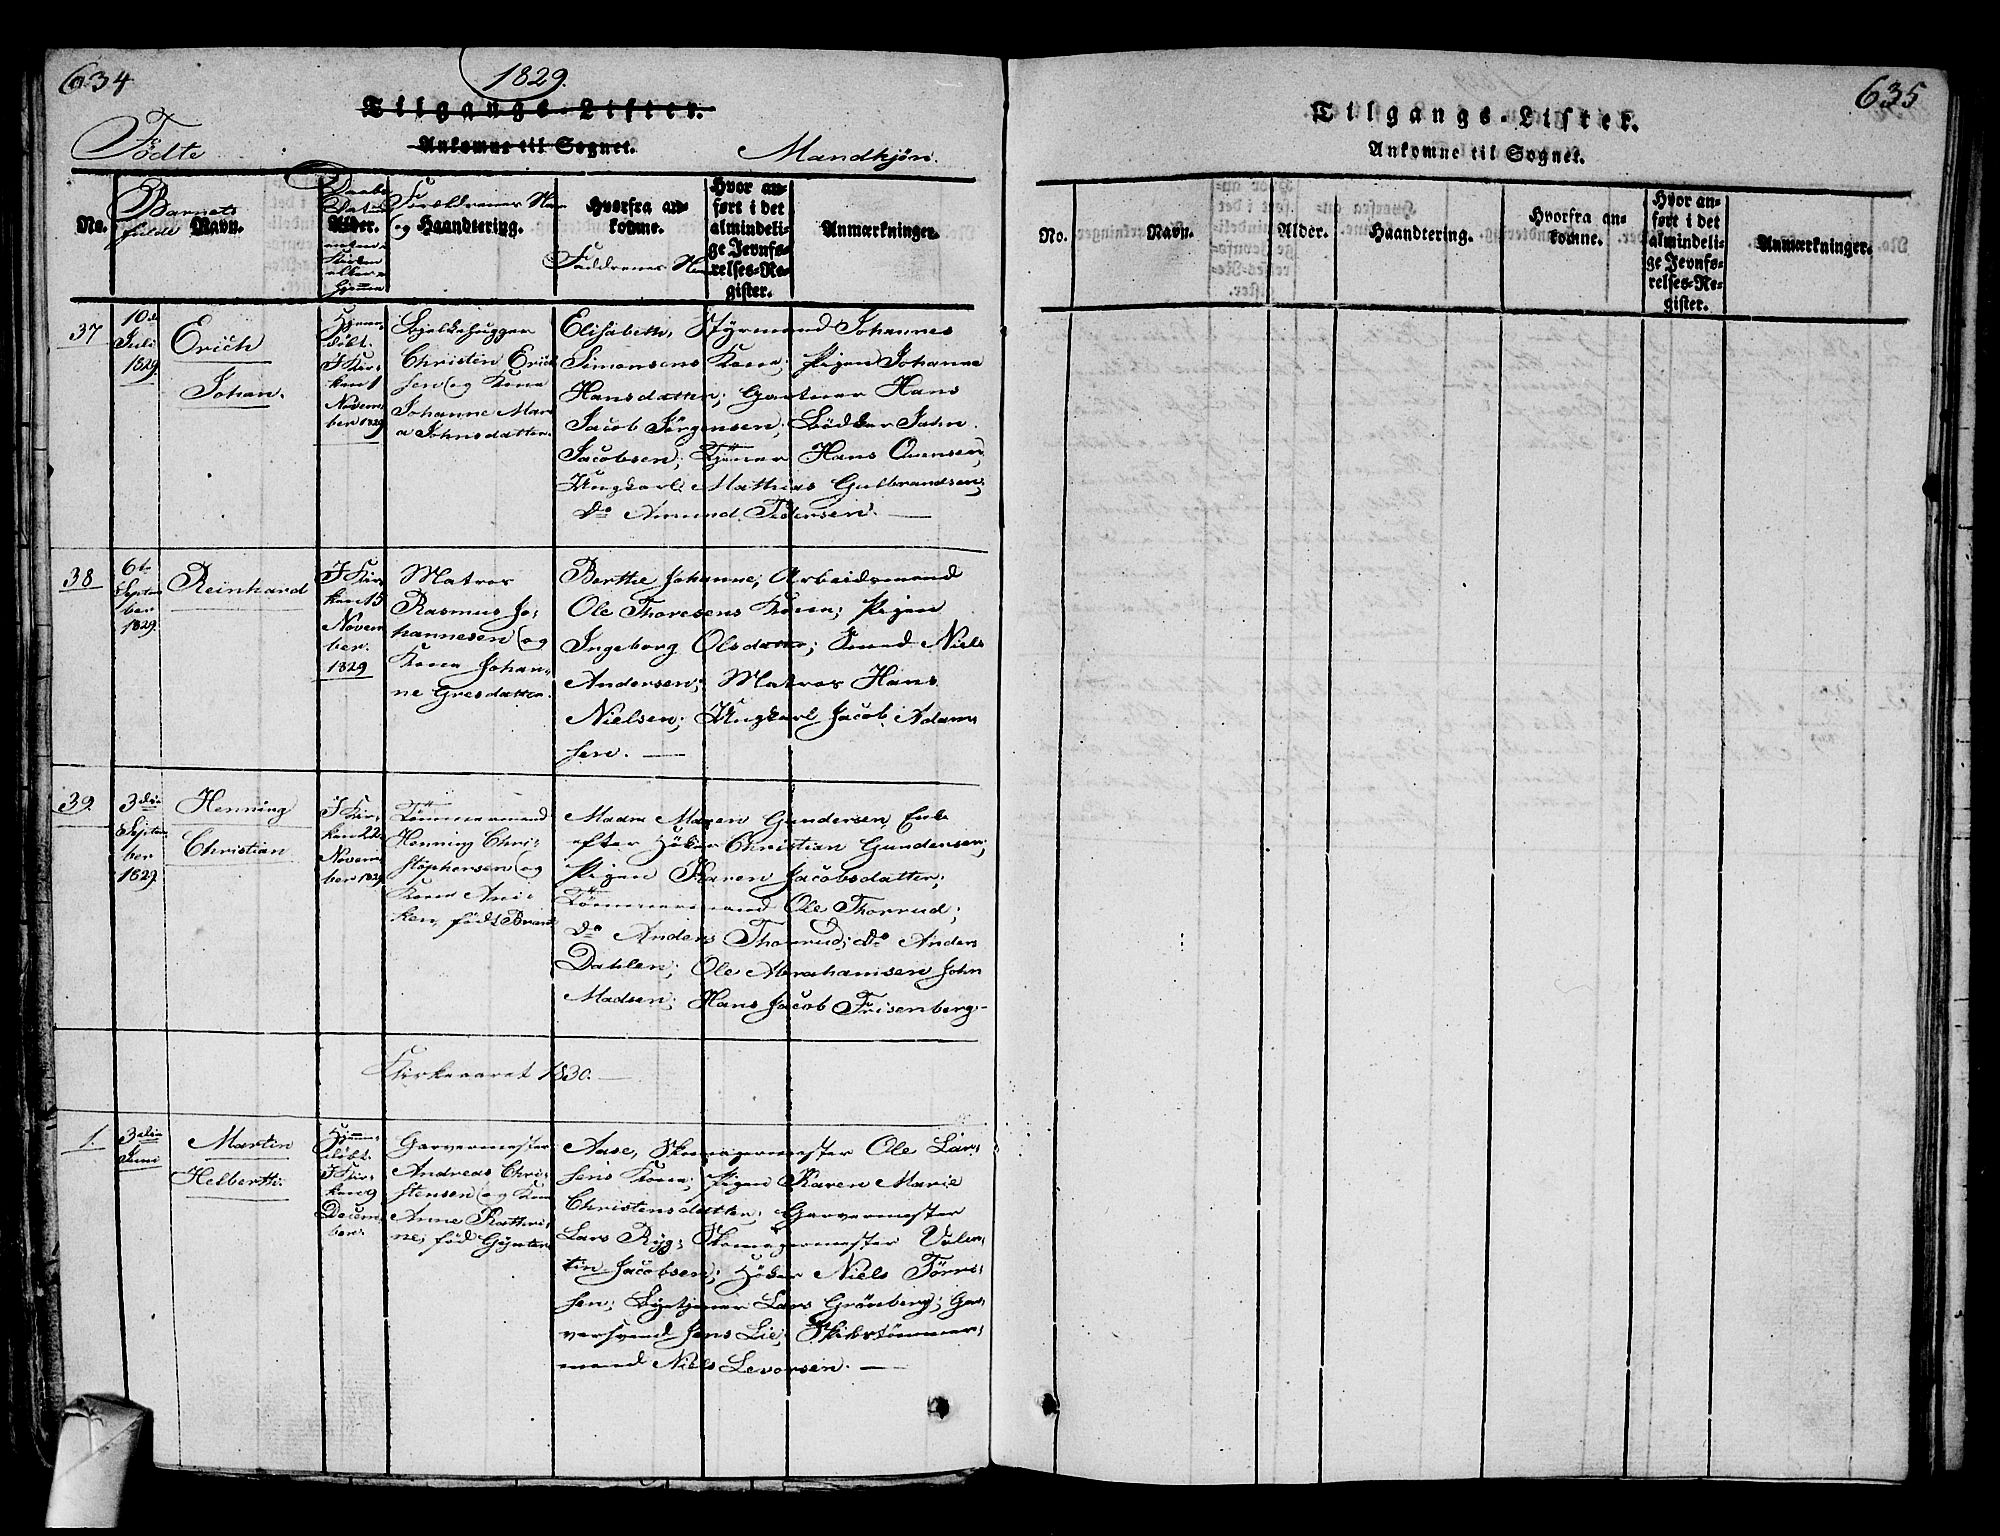 634
1829.
Tilgangs-Lister.
Ankomne til Sognet.
Födte
Mandkjön.
No.
Barnets fulde Navn.
Daabs Datum Alder.
Forældrenes
og Haandtering.
Hvorfra an-
komne.
Faddrenes
Hvor an-
ført i det
almindeli-
ge Jevnfø-
relses-Re-
gister.
Anmærkninger.
37
10de
Juli
1829
Erich
Johan.
Hjem-
döbt.
I Kir-
ken 1
Novem-
ber 1829
Bjelkehugger
Christen Erich
sen og Kone
Johanne Mari
a Johnsdatter.
Elisabeth, Styrmand Johannes
Simonsens Kone; Pigen Johanne
Hansdatter; Gartner Hans
Jacob Jörgensen; Bödker John
Jacobsen; Tjener Hans Ovensen;
Ungkarl Mathias Gulbrandsen;
Do Amund Pedersen.
38
6te
Septem
ber
1829.
Reinhard
I Kir-
ken 15
Novem
ber.
1829
Matros
Rasmus Jo-
hannesen og
Kone Johan-
ne Gresdatter.
Berthe Johanne, Arbeidsmand
Ole Thoresens Kone; Pigen
Ingeborg Olsdatter; Svend Niels
Andersen; Matros Hans
Nielsen; Ungkarl Jacob Adam-
sen.
39
3die
Septem
ber
1829.
Henning
Christian
I Kir-
ken 22
Novem-
ber 1829
Tömmermand
Henning Chri-
stophersen og
Kone Ani-
ken, föd Brand
Madm Maren Gundersen, Enke
efter Höker Christian Gundersen;
Pigen Karen Jacobsdatter;
Tömmermand Ole Thorrud;
Do Anders Thorrud; Do Anders
Dahlen; Ole Abrahamsen John
Madsen; Hans Jacob Frisenberg.
Kirkeaaret 1830.
1.
3die
Juni
Martin
Helberth.
Hjem-
döbt.
I Kir-
ken 9
Decem-
ber.
Garvermester
Andreas Chri-
stensen og Kone
Anne Kathri-
ne, föd Gynter
Aase, Skomagermester Ole Lar-
sens Kone; Pigen Karen Marie
Christensdatter; Garvermester
Lars Ryg; Skomagermester Valen-
tin Jacobsen; Höker Niels Törri-
sen; Byetjener Lars Grönberg; Gar-
versvend Jens Lie; Skibstömmer-
mand Niels Levorsen.
635
Tilgangs-Lister.
Ankomne til Sognet.
No.
Navn.
Alder.
Haandtering.
Hvorfra an-
komne.
Hvor an-
ført i det
almindeli-
ge Jevnfø-
relses-Re-
gister.
Anmærkninger.